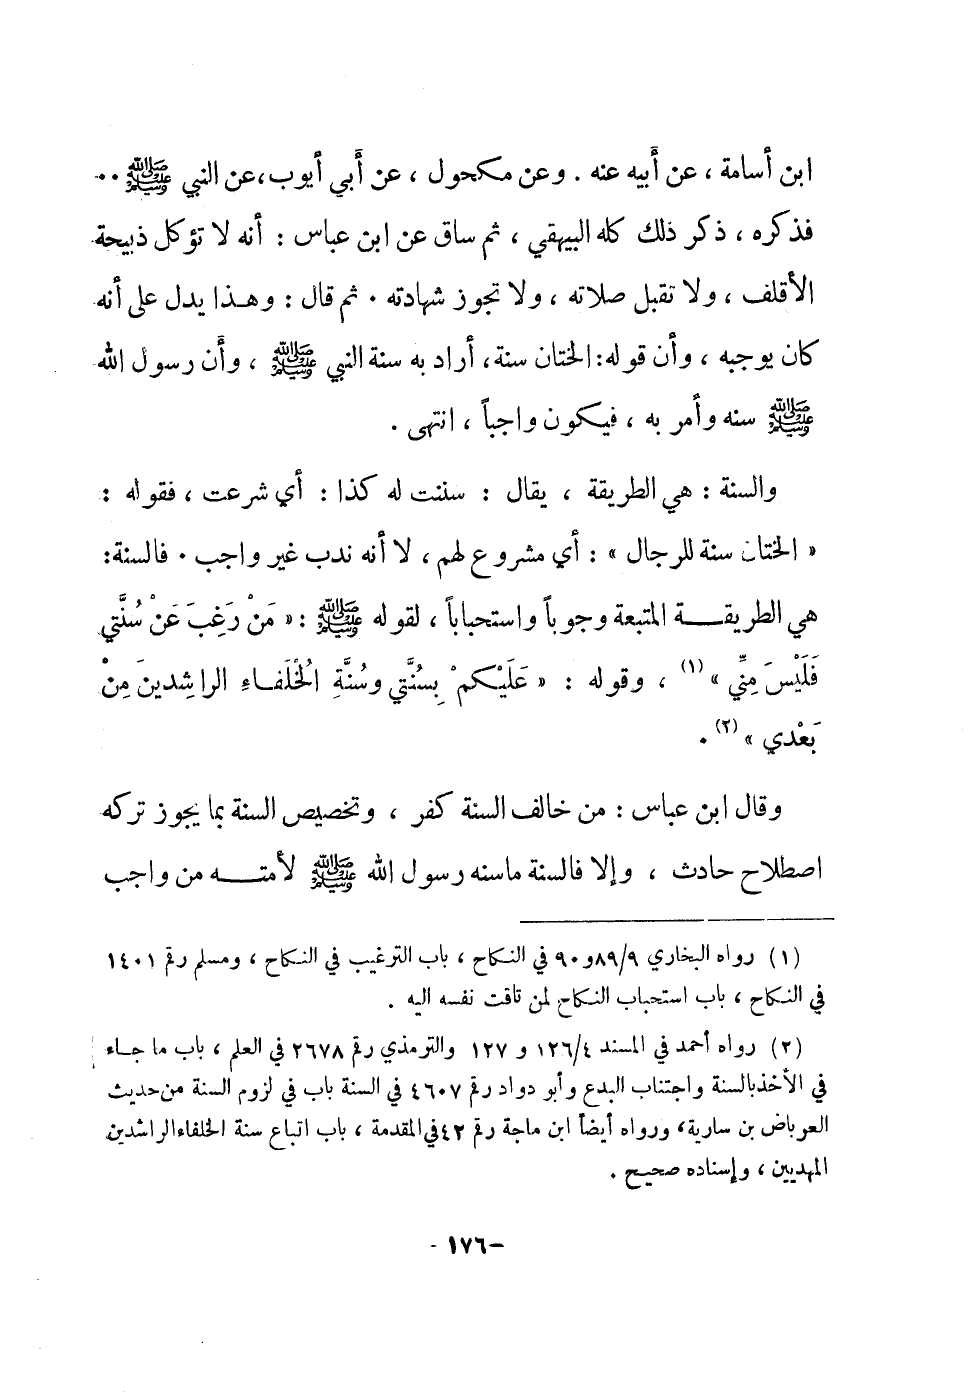 ابن أسامة ، عن أَبيه عنه . وعن مكحول ، عن أَبي أيوب،عن النبي ﷺ ..
فذكره ، ذكر ذلك كله البيهقي ، ثم ساق عن ابن عباس : أنه لا تؤكل ذبيحة
الأقلف ، ولا تقبل صلاته ، ولا تجوز شهادته . ثم قال : وهـذا يدل على أنه
كان يوجبه ، وأن قوله: الختان سنة، أراد به سنة النبي ﷺ ، وأَن رسول الله
ﷺ سنه وأمر به ، فيكون واجباً ، انتهى .
والسنة : هي الطريقة ، يقال : سننت له كذا : أي شرعت ، فقوله :
« الختان سنة للرجال » : أي مشروع لهم ، لا أنه ندب غير واجب . فالسنة:
هي الطريقـــة المتبعة وجوباً واستحباباً ، لقوله ﷺ : « مَنْ رَغِبَ عَنْ سُنَّتي
فَلَيْسَ مِنِّي » (١) ، وقوله : « عَلَيْكمْ بِسُنَّتي وسُنَّةِ الخُلَفـاءِ الراشِدينَ مِنْ
بَعْدي » (٢) .
وقال ابن عباس : من خالف السنة كفر ، وتخصيص السنة بما يجوز تركه
اصطلاح حادث ، وإلا فالسنة ماسنه رسول الله ﷺ لأمتـــه من واجب
(١) رواه البخاري ٨٩/٩و٩٠ في النكاح ، باب الترغيب في النكاح ، ومسلم رقم ١٤٠١
في النكاح ، باب استحباب النكاح لمن تاقت نفسه اليه .
(٢) رواه أحمد في المسند ١٢٦/٤ و ١٢٧ والترمذي رقم ٢٦٧٨ في العلم ، باب ما جـاء
في الأخذبالسنة واجتناب البدع وأبو دواد رقم ٤٦٠٧ في السنة باب في لزوم السنة من حديث
العرباض بن سارية، ورواه أيضاً ابن ماجة رقم ٤٢في المقدمة ، باب اتباع سنة الخلفاءالراشدين
المهديين ، وإسناده صحيح .
-١٧٦ -